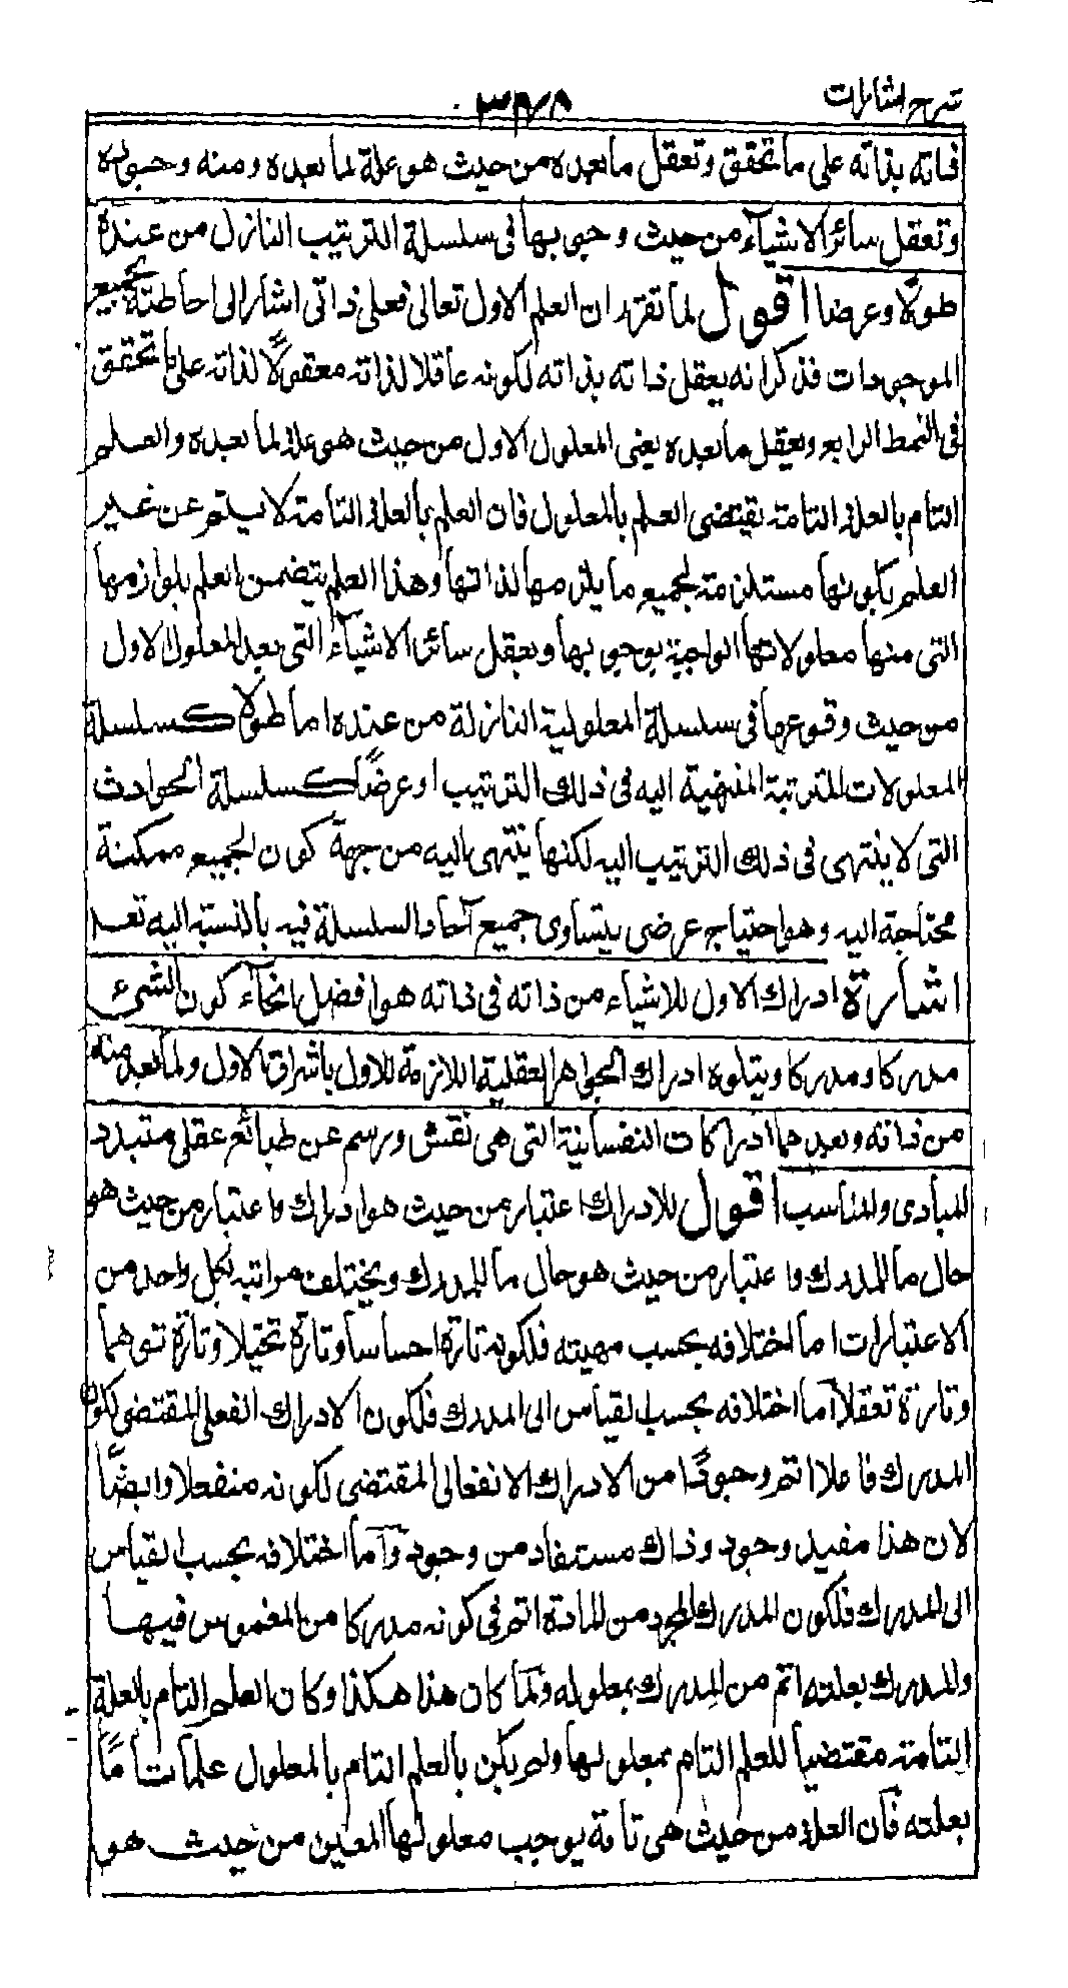 شرح اشارات
٣٨٨
ذاته بذاته على ما تحقق وتعقل ما بعده من حيث هو علة لما بعده ومنه وجوده
وتعقل سائر الاشيآء من حيث وجوبها فى سلسلة الترتيب النازل من عنده
طولًا وعرضا اقول لما تقرر ان العلم الاول تعالى فعلى ذاتى اشار الى احاطته بجميع
الموجودات فذكر انه يعقل ذاته بذاته لكونه عاقلا لذاته معقولًا لذاته على ما تحقق
فى النمط الرابع ويعقل ما بعده يعنى المعلول الاول من حيث هو علة لما بعده والعلم
التام بالعلة التامة يقتضى العلم بالمعلول فان العلم بالعلة التامة لا يتم عن غير
العلم بكونها مستلزمة لجميع ما يلزمها لذاتها وهذا العلم يتضمن العلم بلوازمها
التى منها معلولاتها الواجبة بوجوبها ويعقل سائر الاشيآء التى بعد المعلول الاول
من حيث وقوعها فى سلسلة المعلولية النازلة من عنده اما طولا كسلسلة
المعلولات المترتبة المنتهية اليه فى ذلك الترتيب او عرضًا كسلسلة الحوادث
التى لا ينتهى فى ذلك الترتيب اليه لكنها ينتهى اليه من جهة كون الجميع ممكنة
محتاجة اليه وهو احتياج عرضى يتساوى جميع آحاد السلسلة فيه بالنسبة اليه تعـ
اشارة ادراك الاول للاشياء من ذاته فى ذاته هو افضل انحآء كون الشىء
مدركا ومدركا ويتلوه ادراك الجواهر العقلية اللازمة للاول باشراق الاول ولما بعده منه
من ذاته وبعدهما ادراكات النفسانية التى هى نقش ورسم عن طبائع عقلى متبدد
المبادى والمناسب اقول للادراك اعتبار من حيث هو ادراك واعتبار من حيث هو
حال ما للمدرك واعتبار من حيث هو حال ما للمدرك ويختلف مراتبه بكل واحد من
الاعتبارات اما اختلافه بحسب مهيته فلكونه تارة احساسا وتارة تخيلا وتارة توهما
وتارة تعقلا آما اختلافه بحسب لقياس الى المدرك فلكون الادراك الفعلى المقتضى لكون
المدرك فاعلا اتم وجودًا من الادراك الانفعالى المقتضى لكونه منفعلا وايضًا
لان هذا مفيد وجود وذاك مستفاد من وجود وآما اختلافه بحسب القياس
الى المدرك فلكون المدرك المجرد من المادة اتم فى كونه مدركا من المغموس فيها
والمدرك بعلته اتم من المدرك بمعلوله ولما كان هذا هكذا وكان العلم التام بالعلة
التامة مقتضيا للعلم التام بمعلولها ولم يكن بالعلم التام بالمعلول علما تامًا
بعلته فان العلة من حيث هى تامة يوجب معلولها المعين من حيث هو